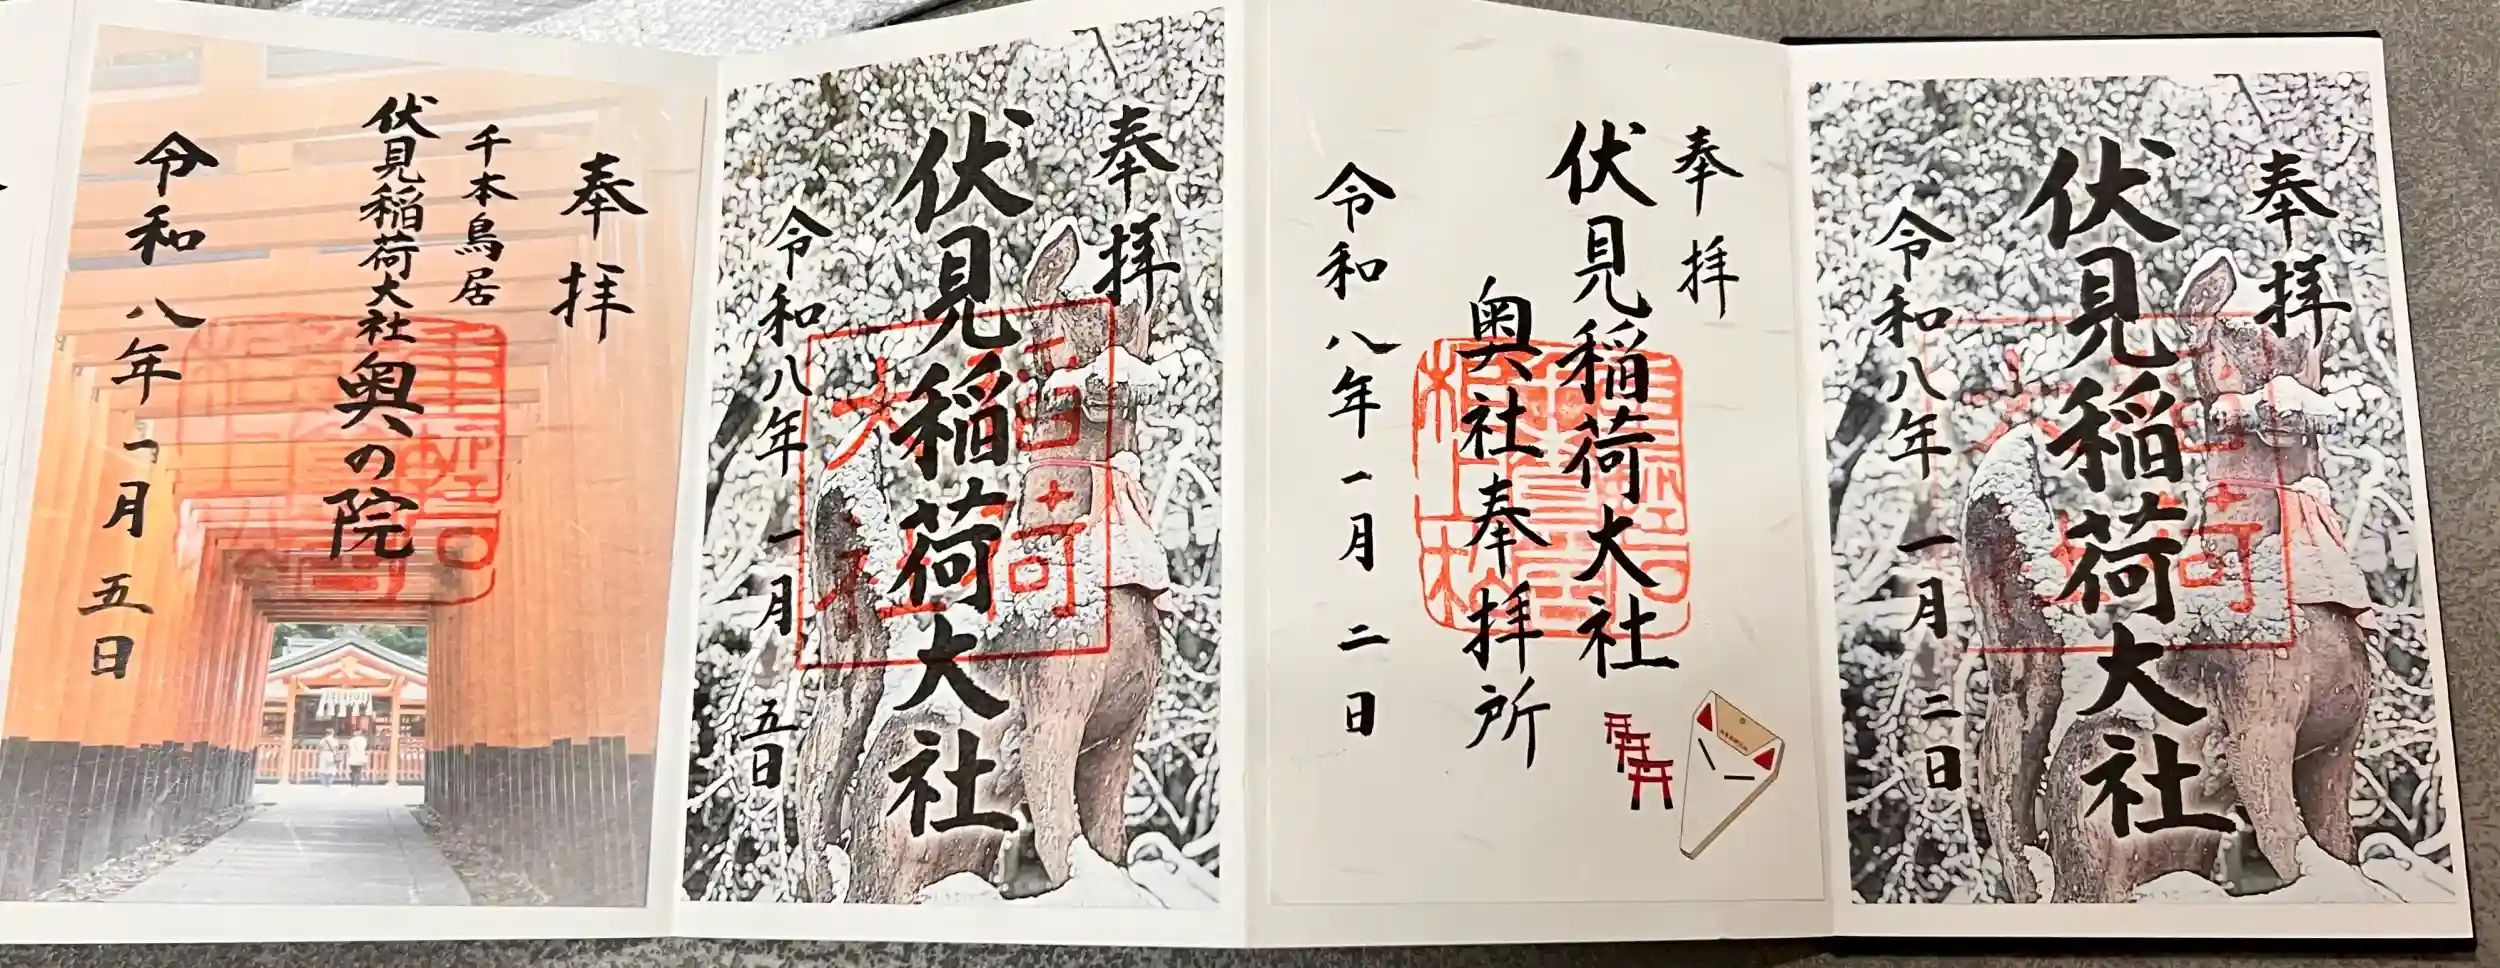 奉拝
伏見稲荷大社
令和八年一月二日
奉拝
伏見稲荷大社
奥社奉拝所
令和八年一月二日
重軽石
根上松
奉拝
伏見稲荷大社
令和八年一月五日
稲荷
大社
奉拝
千本鳥居
伏見稲荷大社奥の院
令和八年一月五日